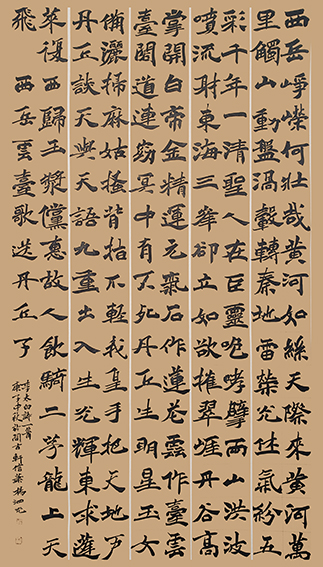 西岳崢嶸何壯哉黃河如絲天際來黃河萬
里觸山動盤渦轂轉秦地雷榮光休氣紛五
彩千年一清聖人在巨靈咆哮擘兩山洪波
噴流射東海三峯卻立如欲摧翠崖丹谷高
掌開白帝金精運元氣石作蓮花雲作臺雲
臺閣道連窈冥中有不死丹丘生明星玉女
備灑掃麻姑搔背指爪輕我皇手把天地戶
丹丘談天與天語九重出入生光輝東求蓬
萊復西歸玉漿儻惠故人飲騎二茅龍上天
飛 西岳雲臺歌送丹丘子
李太白詩一首
庚子中秋於蘭言軒信筆楊